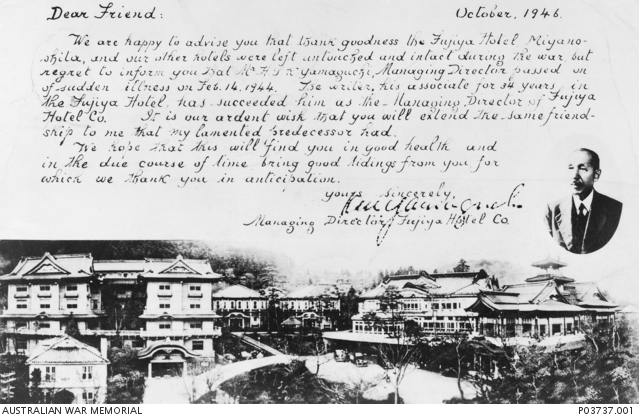 Dear Friend: October, 1946.
We are happy to advise you that thank goodness the Fujiya Hotel Miyano-
shita, and our other hotels were left untouched and intact during the war, but
regret to inform you that Mr. H.S.K. Yamaguchi, Managing Director passed on
of sudden illness on Feb. 14, 1944. The writer, his associate for 34 years, in
the Fujiya Hotel has succeeded him as the Managing Director of Fujiya
Hotel Co. It is our ardent wish that you will extend the same friend-
ship to me that my lamented predecessor had.
We hope that this will find you in good health and
in the due course of time bring good tidings from you for
which we thank you in anticipation.
yours sincerely,
Managing Director, Fujiya Hotel Co
AUSTRALIAN WAR MEMORIAL P03737.001